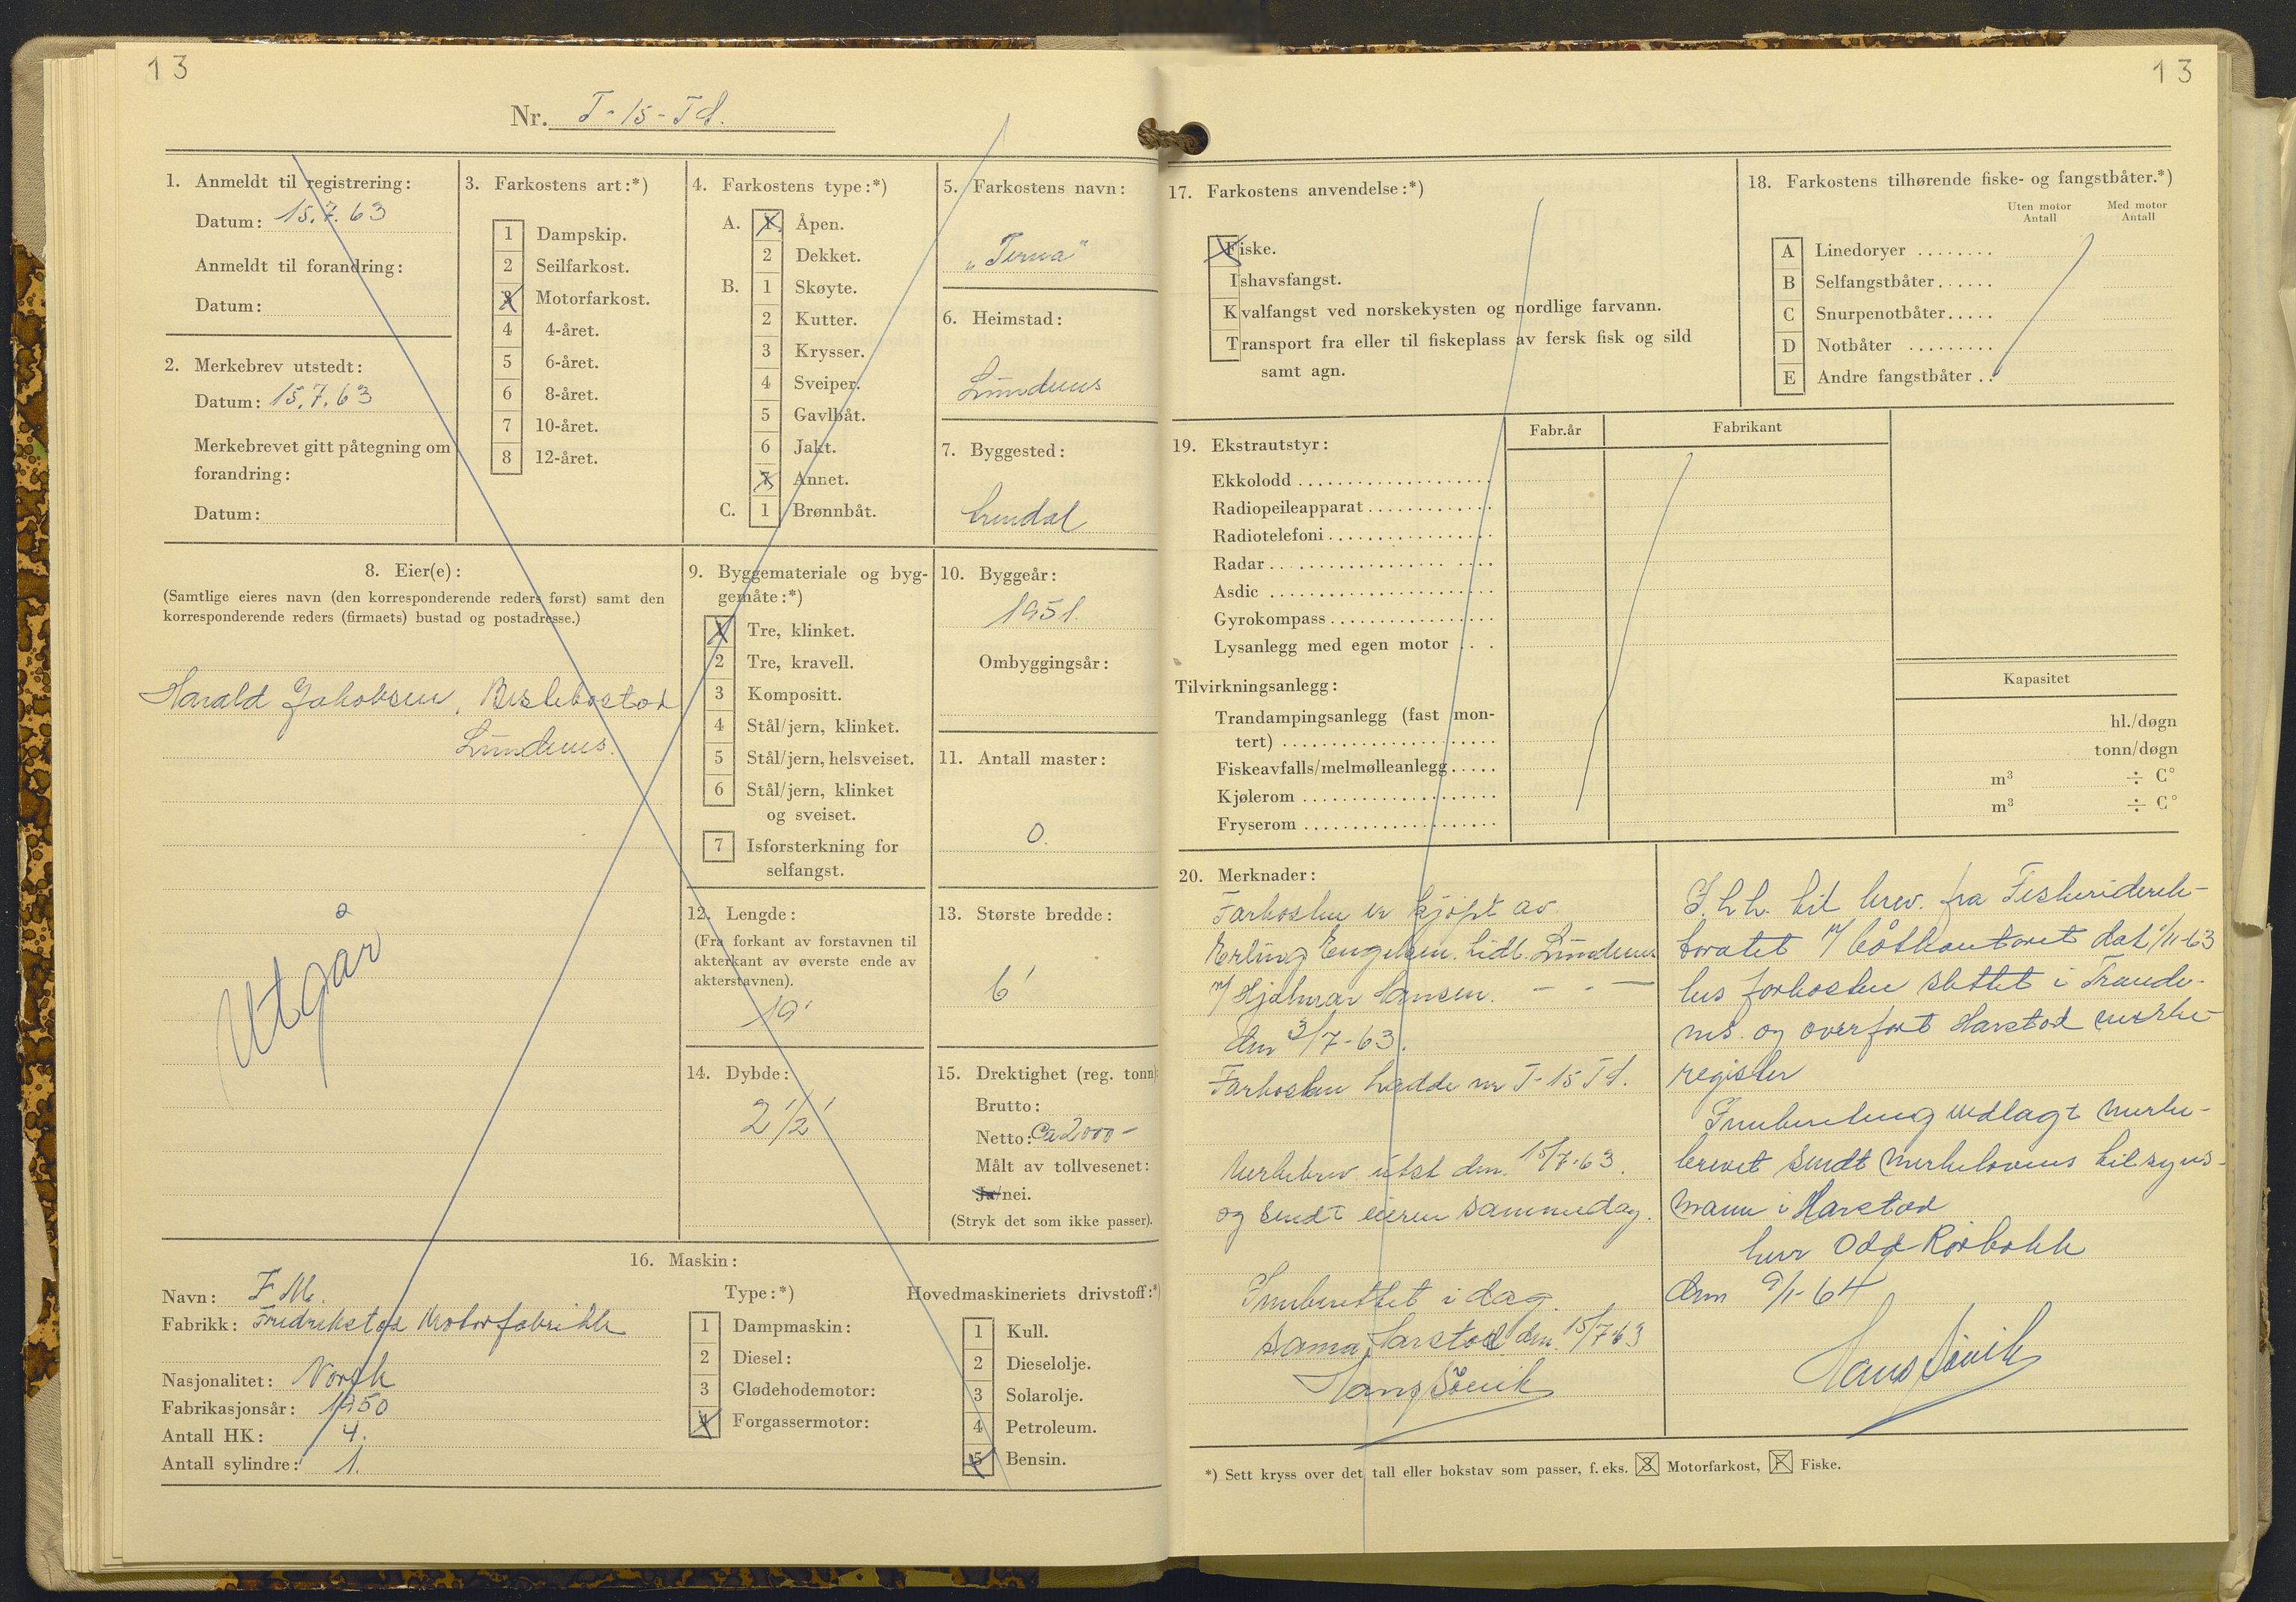 13
Nr. T-15-Td.
1. Anmeldt til registrering:
Datum: 15.7.63
Anmeldt til forandring:
Datum:
2. Merkebrev utstedt:
Datum: 15.7.63
Merkebrevet gitt påtegning om
forandring:
Datum:
3. Farkostens art:*)
1 Dampskip.
2 Seilfarkost.
3 Motorfarkost.
4 4-året.
5 6-året.
6 8-året.
7 10-året.
8 12-året.
4. Farkostens type:*)
A. 1 Åpen.
2 Dekket.
B. 1 Skøyte.
2 Kutter.
3 Krysser.
4 Sveiper.
5 Gavlbåt.
6 Jakt.
7 Annet.
C. 1 Brønnbåt.
5. Farkostens navn:
„Terna"
6. Heimstad:
Lundenes
7. Byggested:
8. Eier(e):
(Samtlige eieres navn (den korresponderende reders først) samt den
korresponderende reders (firmaets) bustad og postadresse.)
Harald Jakobsen,
Lundenes.
Utgår
9. Byggemateriale og byg-
gemåte:*)
1 Tre, klinket.
2 Tre, kravell.
3 Kompositt.
4 Stål/jern, klinket.
5 Stål/jern, helsveiset.
6 Stål/jern, klinket
og sveiset.
7 Isforsterkning for
selfangst.
10. Byggeår:
1951.
Ombyggingsår:
11. Antall master:
0.
12. Lengde:
(Fra forkant av forstavnen til
akterkant av øverste ende av
akterstavnen).
19'
13. Største bredde:
6'
14. Dybde:
2 1/2'
15. Drektighet (reg. tonn):
Brutto:
Netto: Ca 2000-
Målt av tollvesenet:
Ja/nei.
(Stryk det som ikke passer).
16. Maskin:
Navn: F M.
Fabrikk: Fredrikstad Motorfabrikk
Nasjonalitet: Norsk
Fabrikasjonsår: 1950
Antall HK: 4.
Antall sylindre: 1.
Type:*)
1 Dampmaskin:
2 Diesel:
3 Glødehodemotor:
4 Forgassermotor:
Hovedmaskineriets drivstoff:*)
1 Kull.
2 Dieselolje.
3 Solarolje.
4 Petroleum.
5 Bensin.
13
17. Farkostens anvendelse:*)
Fiske.
Ishavsfangst.
Kvalfangst ved norskekysten og nordlige farvann.
Transport fra eller til fiskeplass av fersk fisk og sild
samt agn.
18. Farkostens tilhørende fiske- og fangstbåter.*)
Uten motor Antall
Med motor Antall
A Linedoryer ........
B Selfangstbåter......
C Snurpenotbåter.....
D Notbåter .........
E Andre fangstbåter ..
19. Ekstrautstyr:
Fabr.år
Fabrikant
Ekkolodd
Radiopeileapparat
Radiotelefoni
Radar
Asdic
Gyrokompass
Lysanlegg med egen motor
Tilvirkningsanlegg:
Kapasitet
Trandampingsanlegg (fast mon-
tert) hl./døgn
Fiskeavfalls/melmølleanlegg tonn/døgn
Kjølerom m³ ÷ C°
Fryserom m³ ÷ C°
20. Merknader:
Farkosten er kjøpt av.
Erling Engelsen. Lundenes
v/ Hjalmar Hansen. - - -
den 3/7-63.
Farkosten hadde nr T-15 Td.
Merkebrev utst den. 15/7-63.
og sendt eieren sammedag.
Innberettet i dag.
Sama, Harstad den. 15/7-63
Hans Søvik
I. h.h. til brev. fra Fiskeridirek-
toratet v/ båtkontoret dat 1/11-63
farkosten slettet i Tronde-
nes. og overført Harstad merke-
register
Innberetning vedlagt merke-
brevet sendt merkelovens tilsyns-
mann i Harstad
herr Odd Rørbakk
den 9/1-64
Hans Søvik
*) Sett kryss over det tall eller bokstav som passer, f. eks. 3 Motorfarkost, F Fiske.